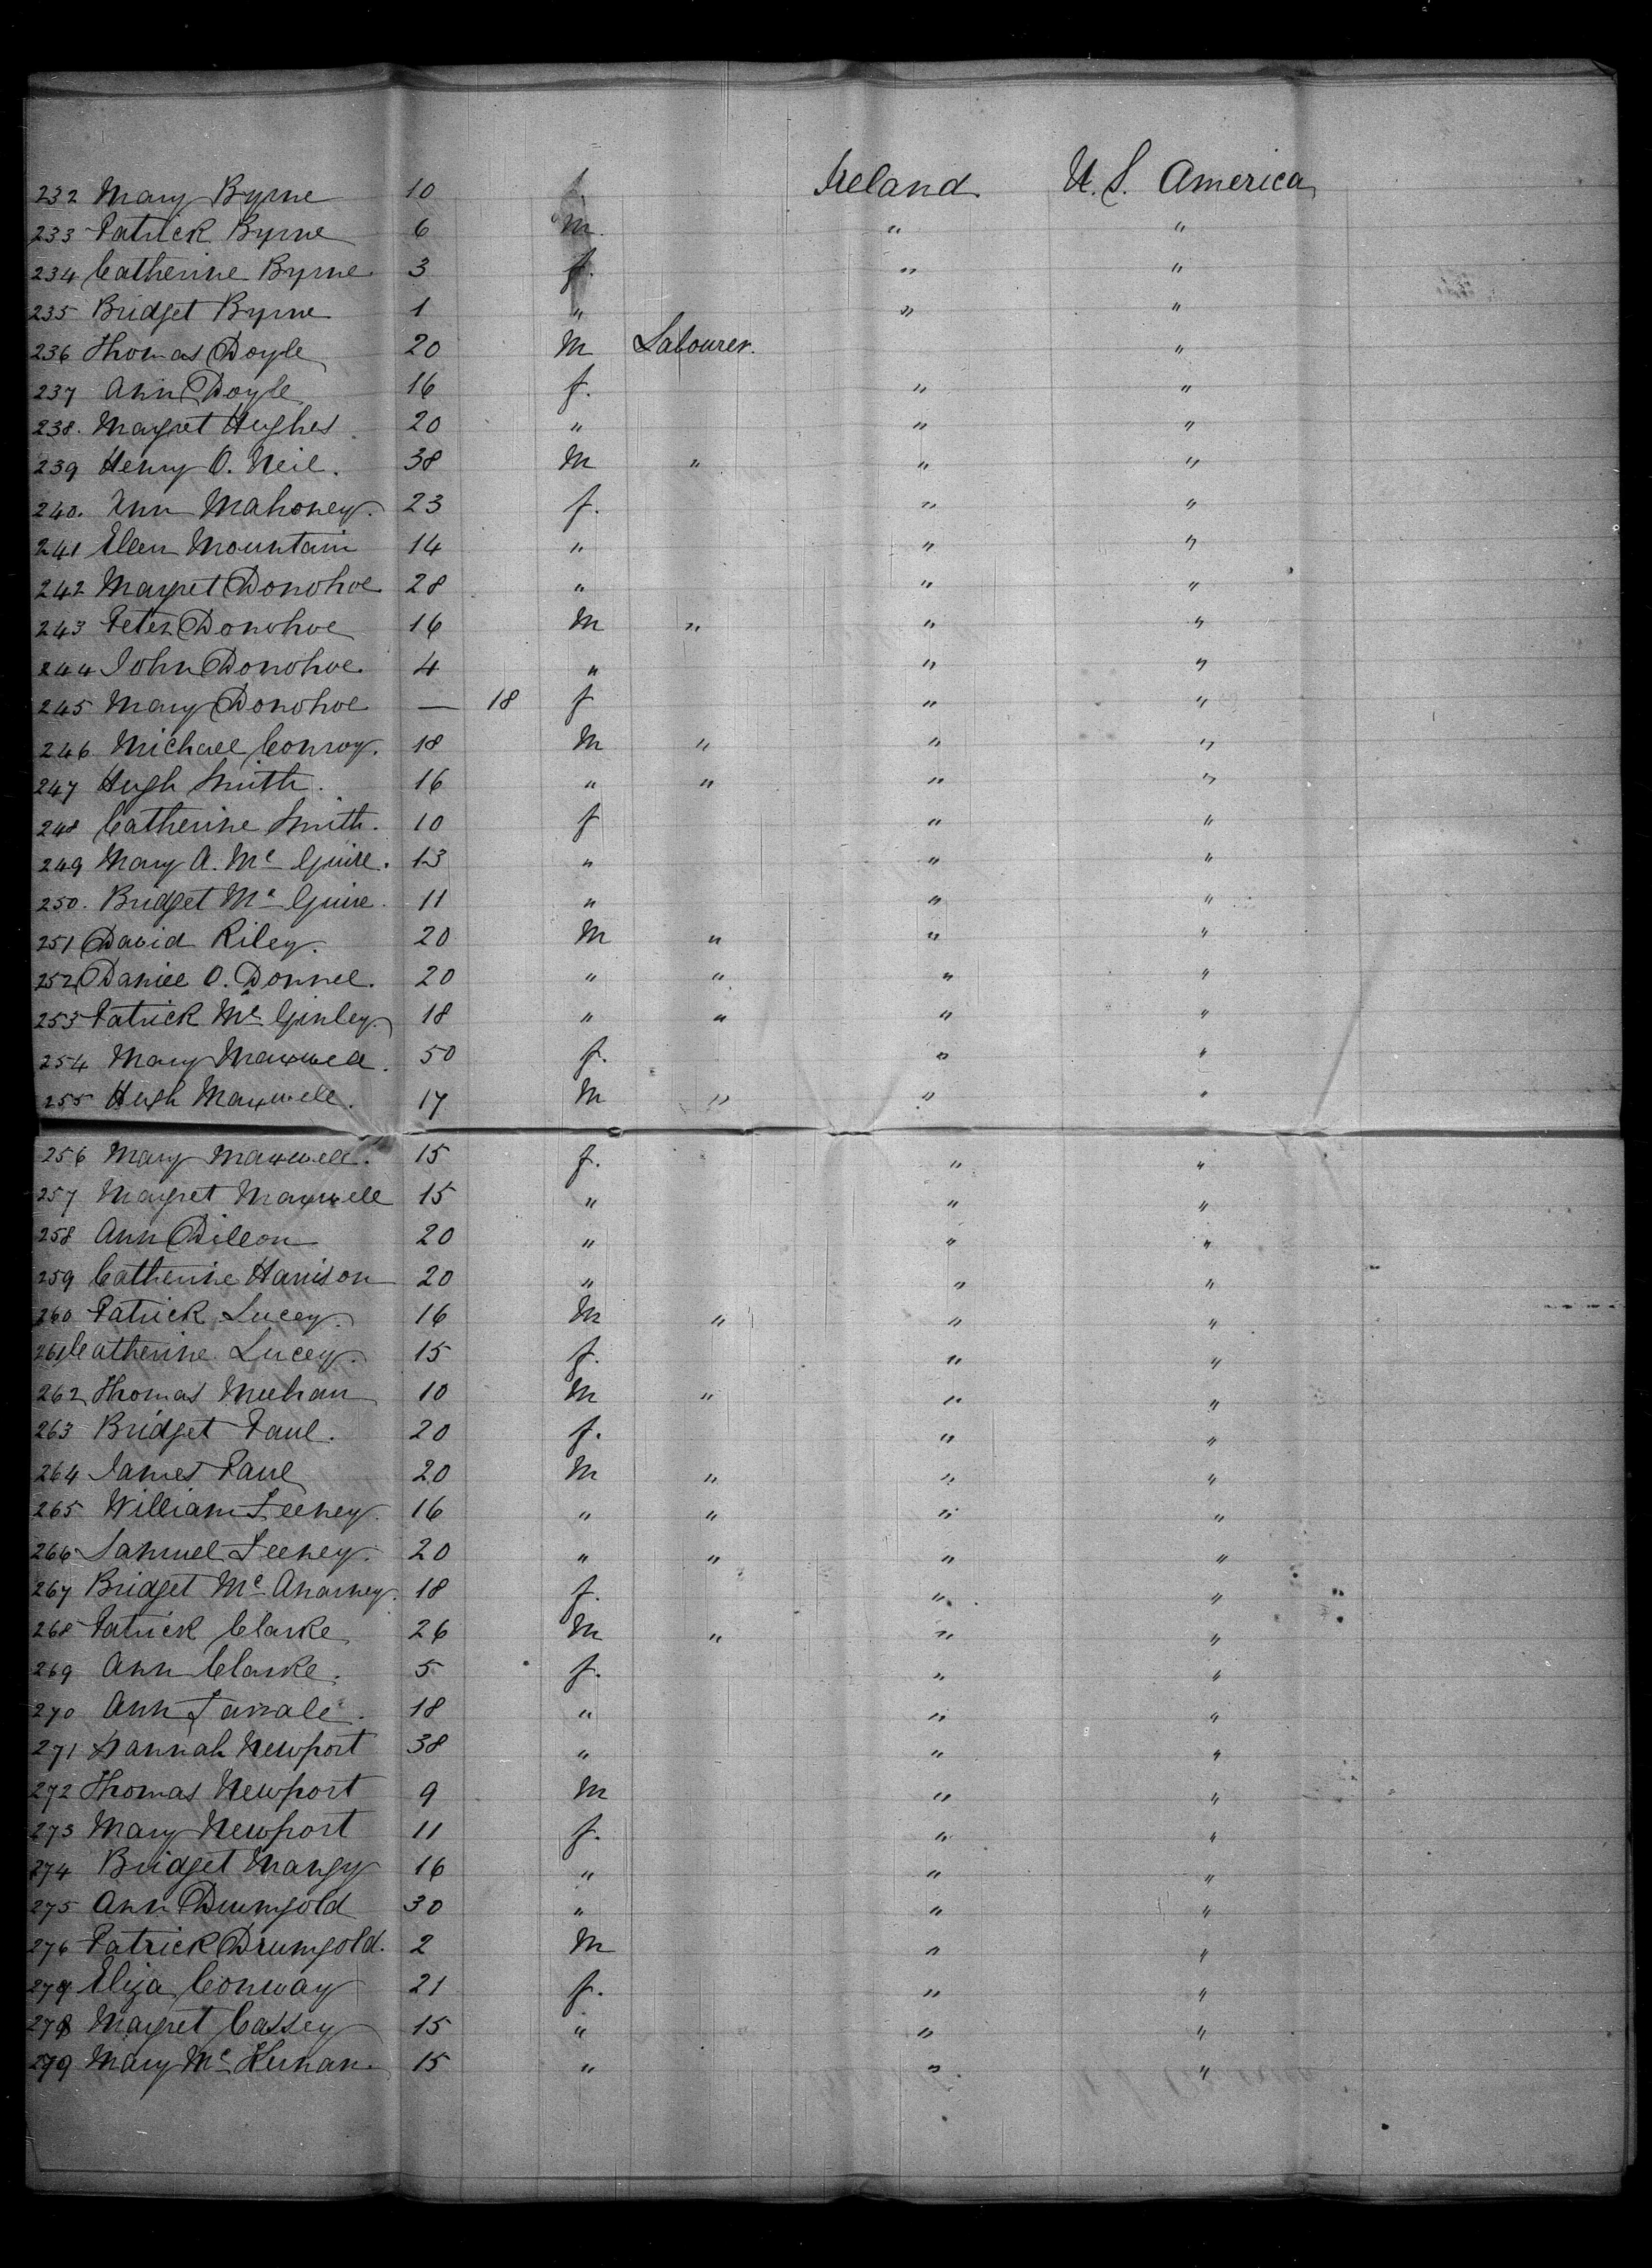 232 Mary Byrne 10 f Ireland U.S. America
233 Patrick Byrne 6 m. " "
234 Catherine Byrne. 3 f. " "
235 Bridget Byrne 1 " " "
236 Thomas Doyle 20 M Labourer. "
237 Ann Doyle 16 f. " "
238. Margret Hughes 20 " " "
239 Henry O. Neil. 38 M " " "
240. Ann Mahoney. 23 f. " "
241 Ellen Mountain 14 " " "
242 Margret Donohoe 28 " " "
243 Peter Donohoe 16 M " " "
244 John Donohoe. 4 " " "
245 Mary Donohoe — 18 f " "
246 Michael Conroy. 18 M " " "
247 Hugh Smith. 16 " " " "
248 Catherine Smith. 10 f " "
249 Mary A. Mc Guire. 13 " " "
250. Bridget Mc Guire. 11 " " "
251 David Riley. 20 M " " "
252 Daniel O. Donnel. 20 " " " "
253 Patrick Mc Ginley. 18 " " " "
254 Mary Maxwell. 50 f. " "
255 Hugh Maxwell. 17 M " " "
256 Mary Maxwell. 15 f. " "
257 Margret Maxwell 15 " " "
258 Ann Dillon 20 " " "
259 Catherine Harrison 20 " " "
260 Patrick Lucey. 16 M " " "
261 Catherine Lucey. 15 f. " "
262 Thomas Meehan 10 M " " "
263 Bridget Paul. 20 f. " "
264 James Paul 20 M " " "
265 William Feeney. 16 " " " "
266 Samuel Feeney. 20 " " " "
267 Bridget Mc Anarney. 18 f. " "
268 Patrick Clarke 26 M " " "
269 Ann Clarke. 5 f. " "
270 Ann 18 " " "
271 Hannah Newport 38 " " "
272 Thomas Newport 9 M " "
273 Mary Newport 11 f. " "
274 Bridget Mangy 16 " " "
275 Ann Drumgold 30 " " "
276 Patrick Drumgold. 2 M " "
277 Eliza Conway 21 f. " "
278 Margret Cassey 15 " " "
279 Mary Mc 15 " " "